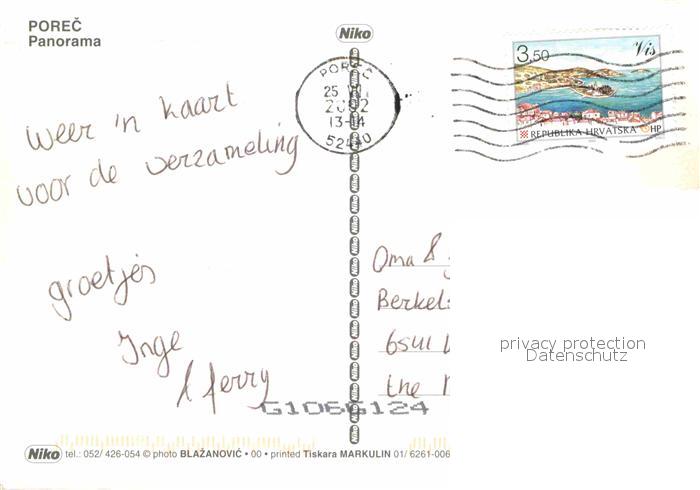 POREČ
Panorama
Niko
POREČ
2002
13-14
52440
3,50
Vis
REPUBLIKA HRVATSKA HP
weer 'n kaart
voor de verzameling
groetjes
Inge
& ferry
Oma &
Berkel
the
privacy protection
Datenschutz
G1066124
Niko tel.: 052/ 426-054 © photo BLAŽANOVIĆ • 00 • printed Tiskara MARKULIN 01/ 6261-006